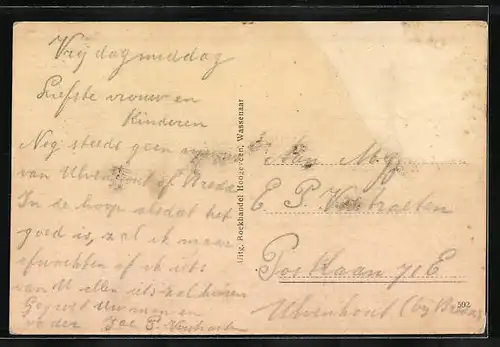 Vrijdagmiddag
Liefste vrouw en
Kinderen
Nog steeds geen
van Ulvenhout of Breda
In de hoop alsdat het
goed is, zal ik maar
afwachten of ik iets
van U allen iets zal hooren
Gegroet Uw man en
vader
Uitg. Boekhandel Hoogeveen, Wassenaar
Aan Mej
E P. Verstraeten
Postlaan 70 E
Ulvenhout (bij Breda)
592